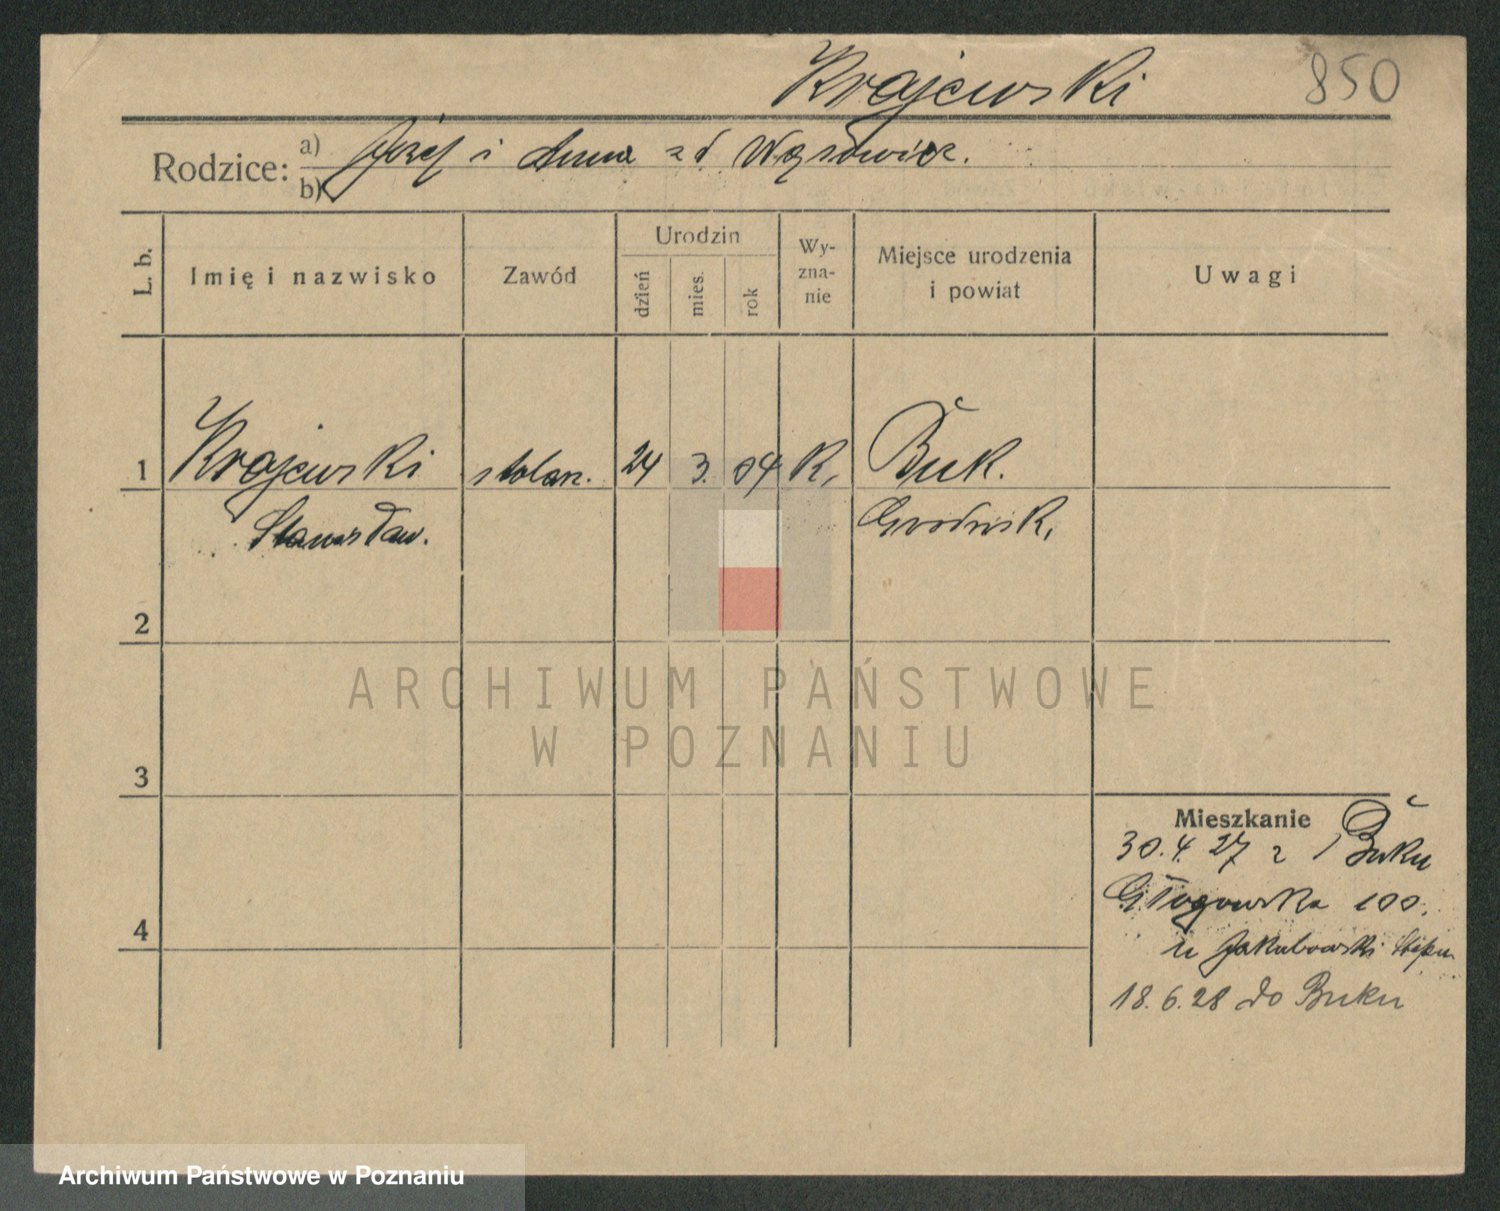 Krajewski 850
Rodzice: a) Józef i Anna zd Wąsowicz.
b)
L. b. Imię i nazwisko Zawód Urodzin dzień mies. rok Wy-zna-nie Miejsce urodzenia i powiat Uwagi
1 Krajewski stolarz. 24 3. 04 K. Buk.
Stanisław. Grodzisk,
2
ARCHIWUM PAŃSTWOWE
W POZNANIU
3
Mieszkanie
30.4.27 z Buku
Głogowska 100.
4
u Jakubowski
18.6.28 do Buku
Archiwum Państwowe w Poznaniu